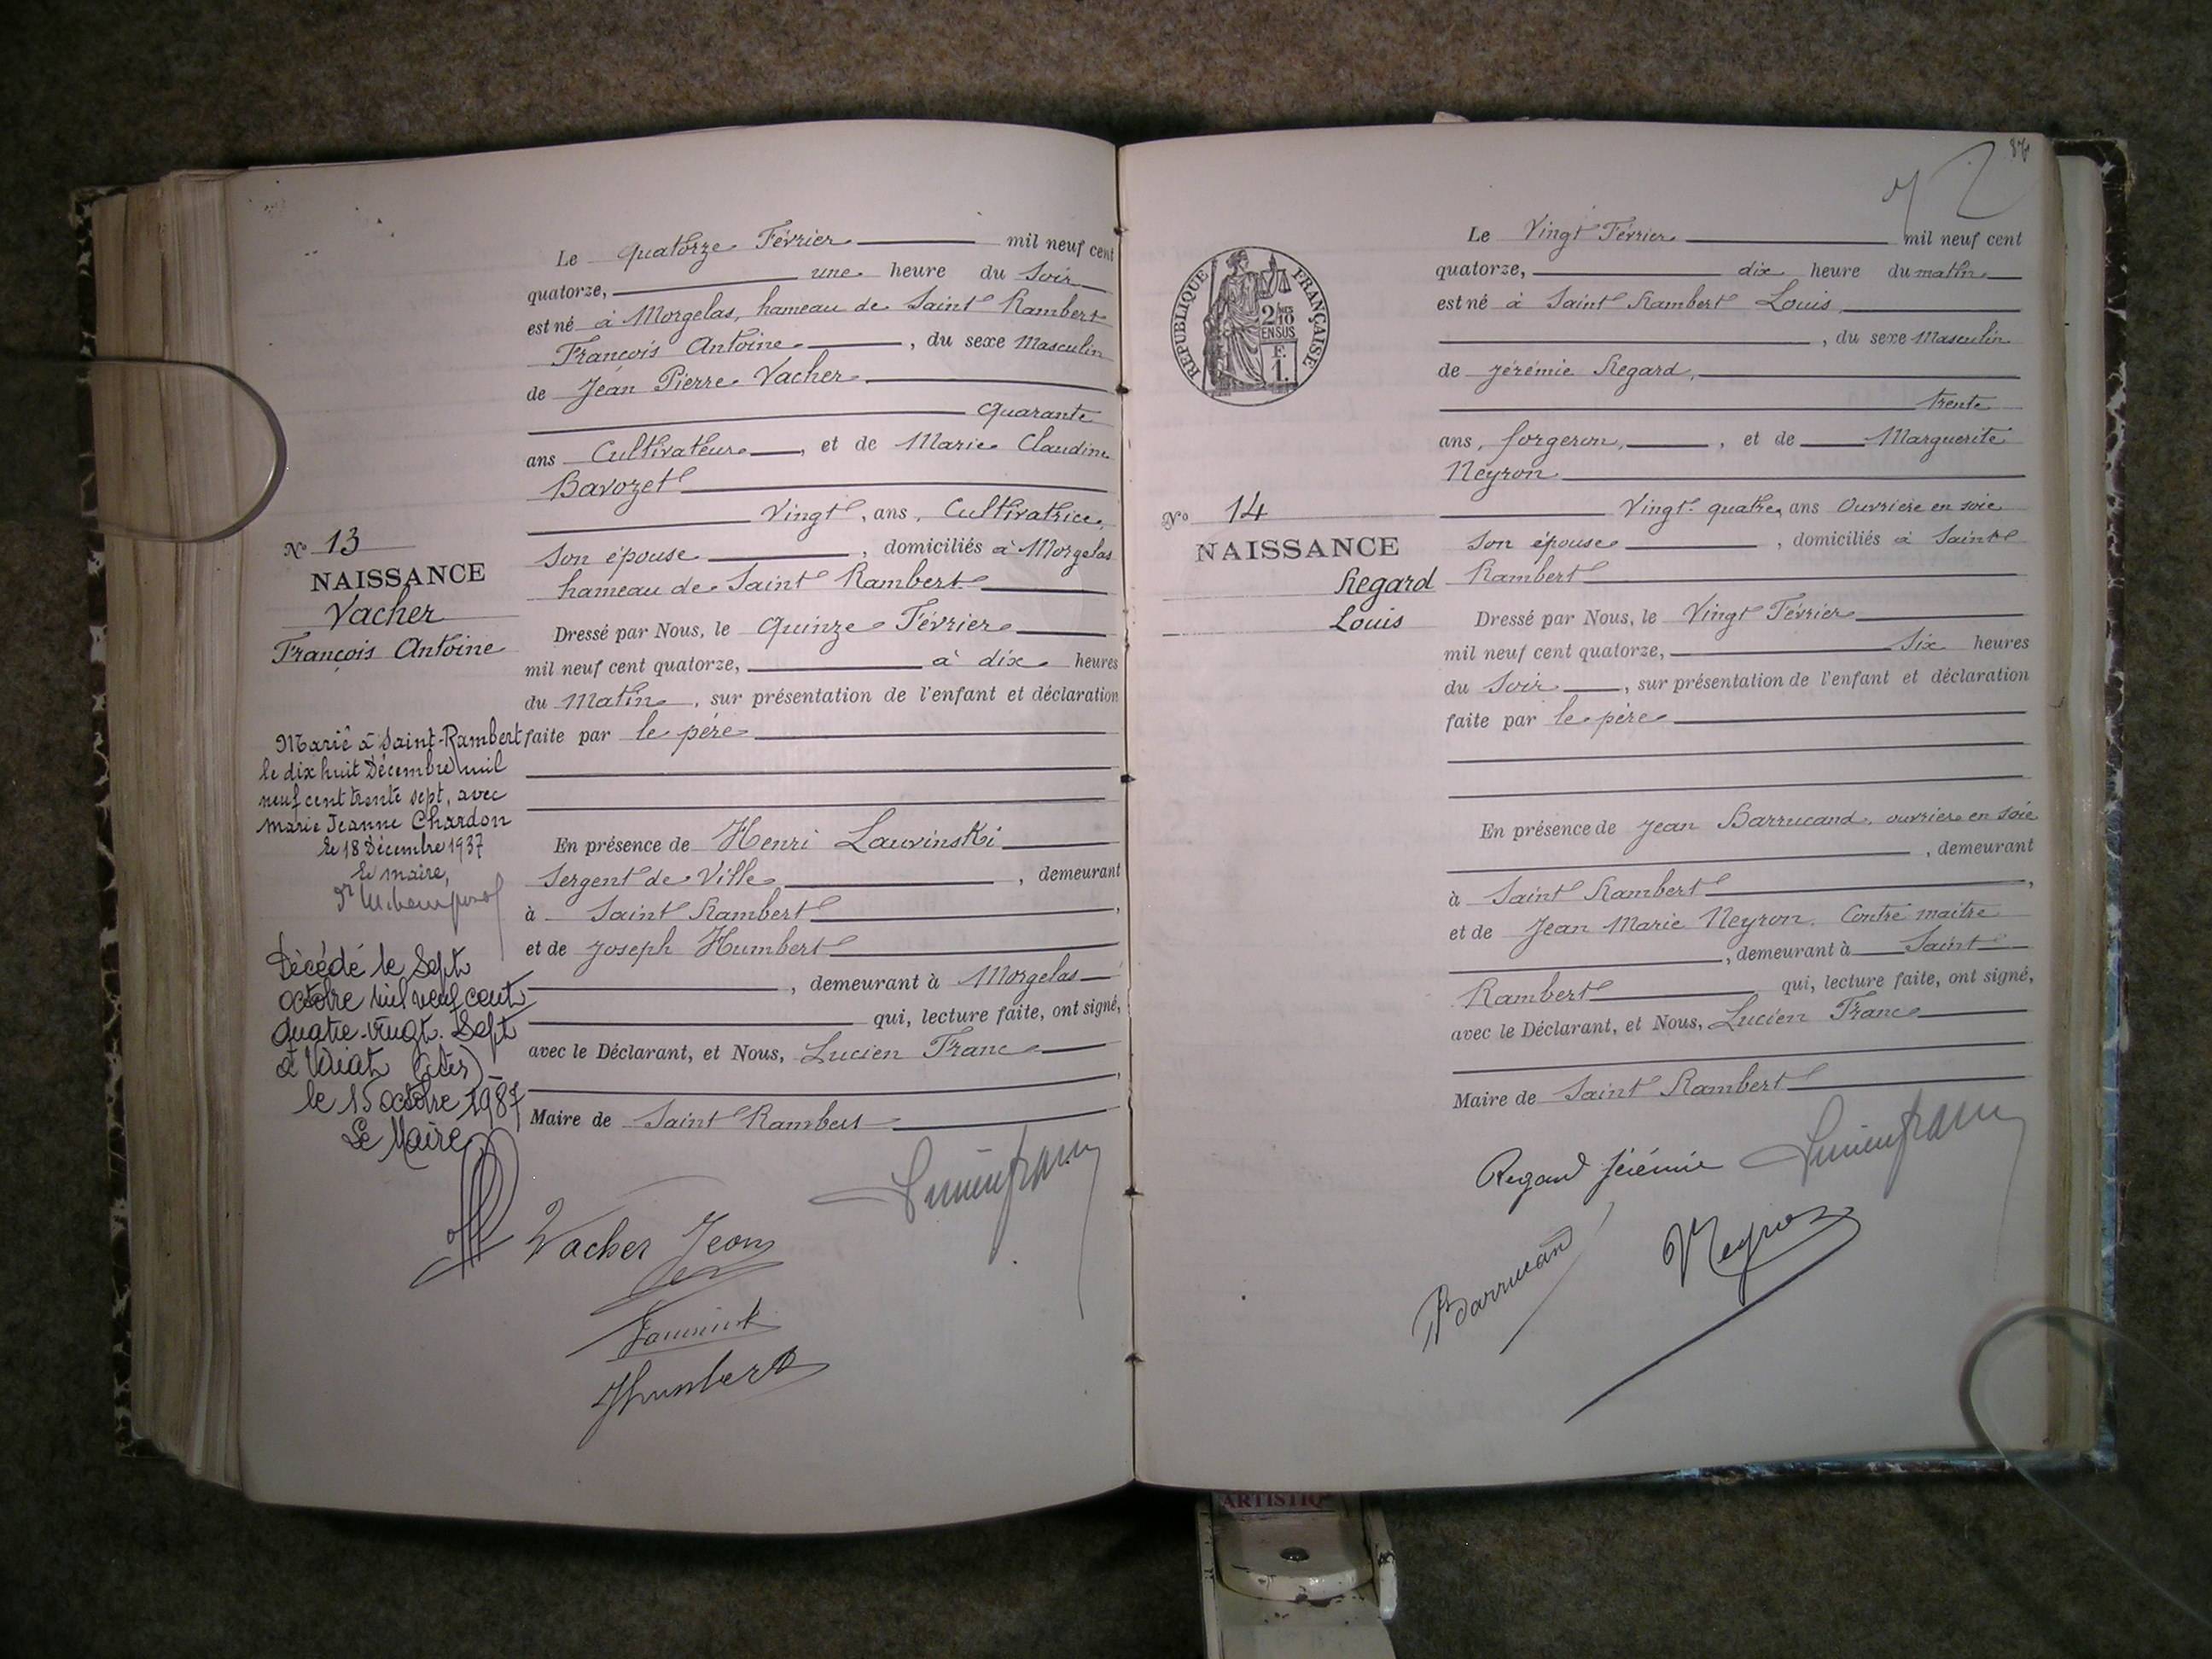 Le quatorze Février mil neuf cent
quatorze, une heure du Soir
est né à Morgelas, hameau de Saint Rambert
François Antoine, du sexe Masculin
de Jean Pierre Vacher
Quarante
ans Cultivateur, et de Marie Claudine
Bavozet
Vingt, ans, Cultivatrice,
Son épouse, domiciliés à Morgelas
hameau de Saint Rambert
Dressé par Nous, le Quinze Février
mil neuf cent quatorze, à dix heures
du Matin, sur présentation de l'enfant et déclaration
faite par le père
En présence de Henri Lauvinski
Sergent de Ville, demeurant
à Saint Rambert,
et de Joseph Humbert
, demeurant à Morgelas
qui, lecture faite, ont signé,
avec le Déclarant, et Nous, Lucien Franc
,
Maire de Saint Rambert
N° 13
NAISSANCE
Vacher
François Antoine
Marié à Saint-Rambert
le dix huit Décembre mil
neuf cent trente sept, avec
Marie Jeanne Chardon
le 18 Décembre 1937
Le maire,
Décédé le Sept
octobre mil neuf cent
quatre-vingt-Sept
à Viriat (Ain)
le 15 octobre 1987
Le Maire
Vacher Jean
Humbert
87
RÉPUBLIQUE FRANÇAISE
2/10
EN SUS
F.
1.
Le Vingt Février mil neuf cent
quatorze, dix heure du matin
est né à Saint Rambert Louis,
, du sexe Masculin
de Jérémie Regard,
trente
ans, forgeron, , et de Marguerite
Neyron
Vingt-quatre, ans Ouvrière en soie
Son épouse, domiciliés à Saint
Rambert
Dressé par Nous, le Vingt Février
mil neuf cent quatorze, Six heures
du Soir, sur présentation de l'enfant et déclaration
faite par le père
En présence de Jean Barrucand, ouvrier en soie
, demeurant
à Saint Rambert,
et de Jean Marie Neyron. Contre maitre
, demeurant à Saint
Rambert qui, lecture faite, ont signé,
avec le Déclarant, et Nous, Lucien Franc
Maire de Saint Rambert
N° 14
NAISSANCE
Regard
Louis
Regard Jérémie
Lucien Franc
Neyron
ARTISTIQ